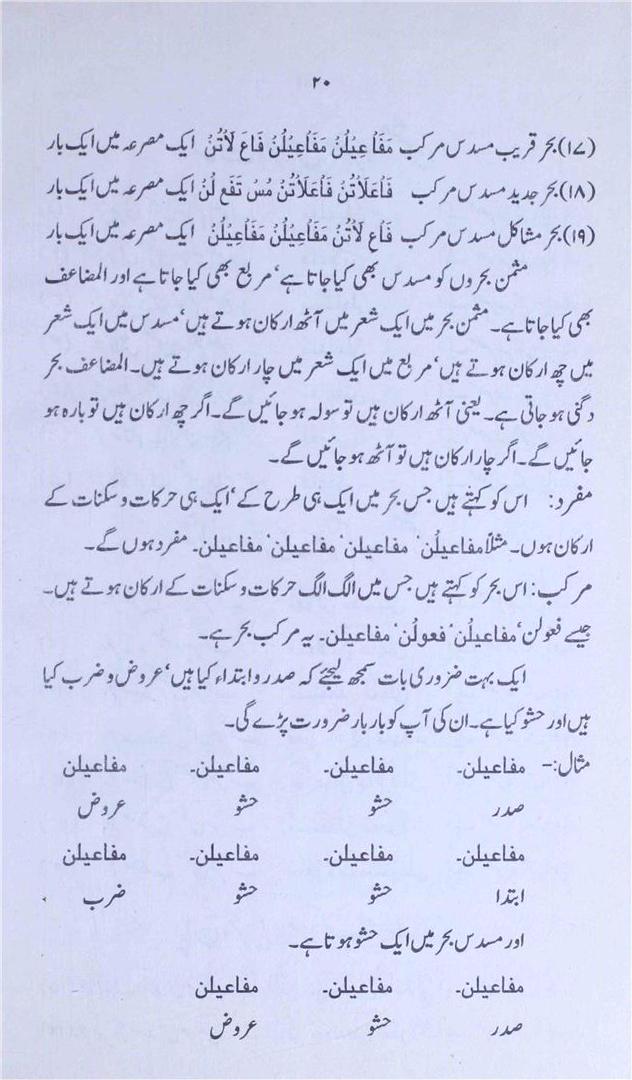 ۲۰
(۱۷) بحر قریب مسدس مرکب مَفَاْعِیْلُنْ مَفَاْعِیْلُنْ فَاْعَ لَاْتُنْ ایک مصرعہ میں ایک بار
(۱۸) بحر جدید مسدس مرکب فَاْعَلَاْتُنْ فَاْعَلَاْتُنْ مُسْ تَفَعِ لُنْ ایک مصرعہ میں ایک بار
(۱۹) بحر مشاکل مسدس مرکب فَاْعِ لَاْتُنْ مَفَاْعِیْلُنْ مَفَاْعِیْلُنْ ایک مصرعہ میں ایک بار
مثمن بحروں کو مسدس بھی کیا جاتا ہے‘ مربع بھی کیا جاتا ہے اور المضاعف
بھی کیا جاتا ہے۔ مثمن بحر میں ایک شعر میں آٹھ ارکان ہوتے ہیں‘ مسدس میں ایک شعر
میں چھ ارکان ہوتے ہیں‘ مربع میں ایک شعر میں چار ارکان ہوتے ہیں۔ المضاعف بحر
دگنی ہو جاتی ہے۔ یعنی آٹھ ارکان ہیں تو سولہ ہو جائیں گے۔ اگر چھ ارکان ہیں تو بارہ ہو
جائیں گے۔ اگر چار ارکان ہیں تو آٹھ ہو جائیں گے۔
مفرد: اس کو کہتے ہیں جس بحر میں ایک ہی طرح کے‘ ایک ہی حرکات و سکنات کے
ارکان ہوں۔ مثلاً مفاعیلُن‘ مفاعیلن‘ مفاعیلن‘ مفاعیلن۔ مفرد ہوں گے۔
مرکب: اس بحر کو کہتے ہیں جس میں الگ الگ حرکات و سکنات کے ارکان ہوتے ہیں۔
جیسے فعولن‘ مفاعیلُن‘ فعولُن‘ مفاعیلن۔ یہ مرکب بحر ہے۔
ایک بہت ضروری بات سمجھ لیجئے کہ صدر و ابتداء کیا ہیں‘ عروض و ضرب کیا
ہیں اور حشو کیا ہے۔ ان کی آپ کو بار بار ضرورت پڑے گی۔
مثال:- مفاعیلن۔ مفاعیلن۔ مفاعیلن۔ مفاعیلن
صدر حشو حشو عروض
مفاعیلن۔ مفاعیلن۔ مفاعیلن۔ مفاعیلن
ابتدا حشو حشو ضرب
اور مسدس بحر میں ایک حشو ہوتا ہے۔
مفاعیلن۔ مفاعیلن۔ مفاعیلن
صدر حشو عروض